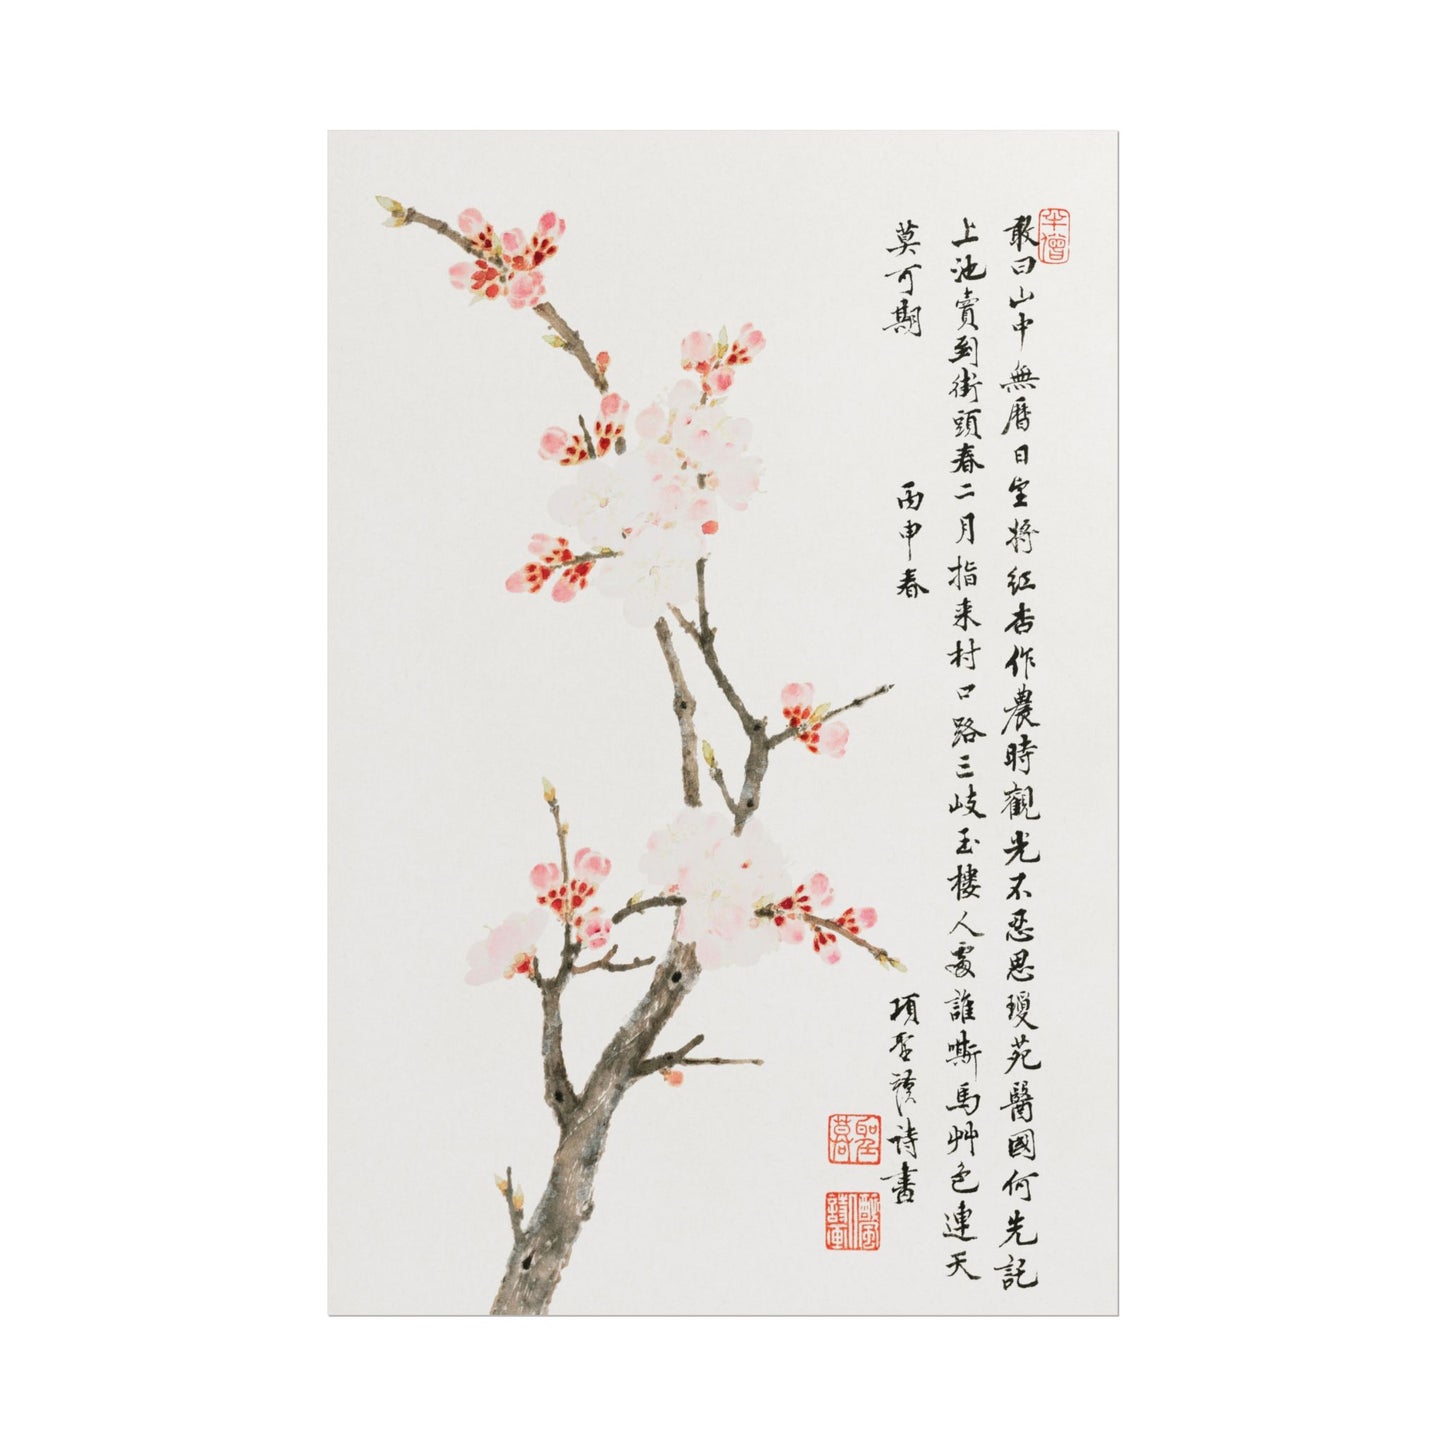 敢曰山中無曆日空將紅杏作農時觀光不忍思瓊苑醫國何先託
上池賣到街頭春二月指来村口路三岐玉樓人處誰嘶馬艸色連天
莫可期
丙申春
項聖謨詩畫